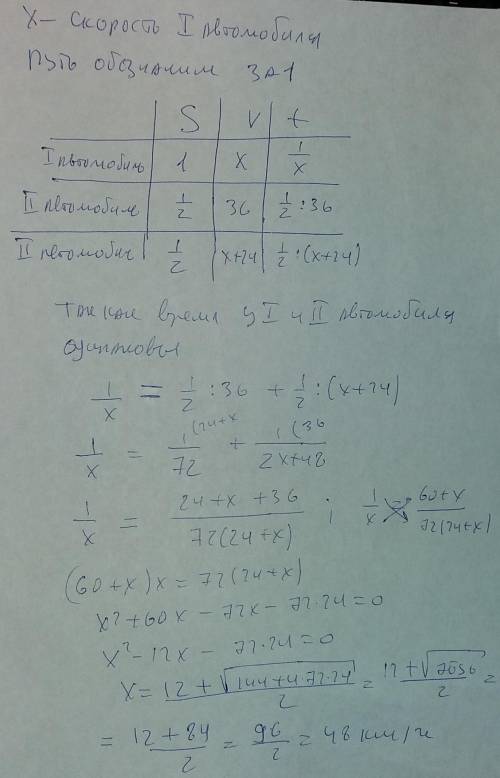 X – скорость I автомобиля
путь обозначим за 1
S V t
I автомобиль 1 x 1/x
II автомобиль 1/2 36 1/2 : 36
II автомобиль 1/2 x+24 1/2 : (x+24)
так как время у I и II автомобиля
одинаковы
1/x = 1/2 : 36 + 1/2 : (x+24)
1/x = 1(24+x/72 + 1(36/2x+48
1/x = 24+x+36/72(24+x) ; 1/x = 60+x/72(24+x)
(60+x)x = 72(24+x)
x²+60x – 72x – 72·24=0
x² – 12x – 72·24=0
x = 12+√144+4·72·24/2 = 12+√7056/2 =
= 12+84/2 = 96/2 = 48 км/ч